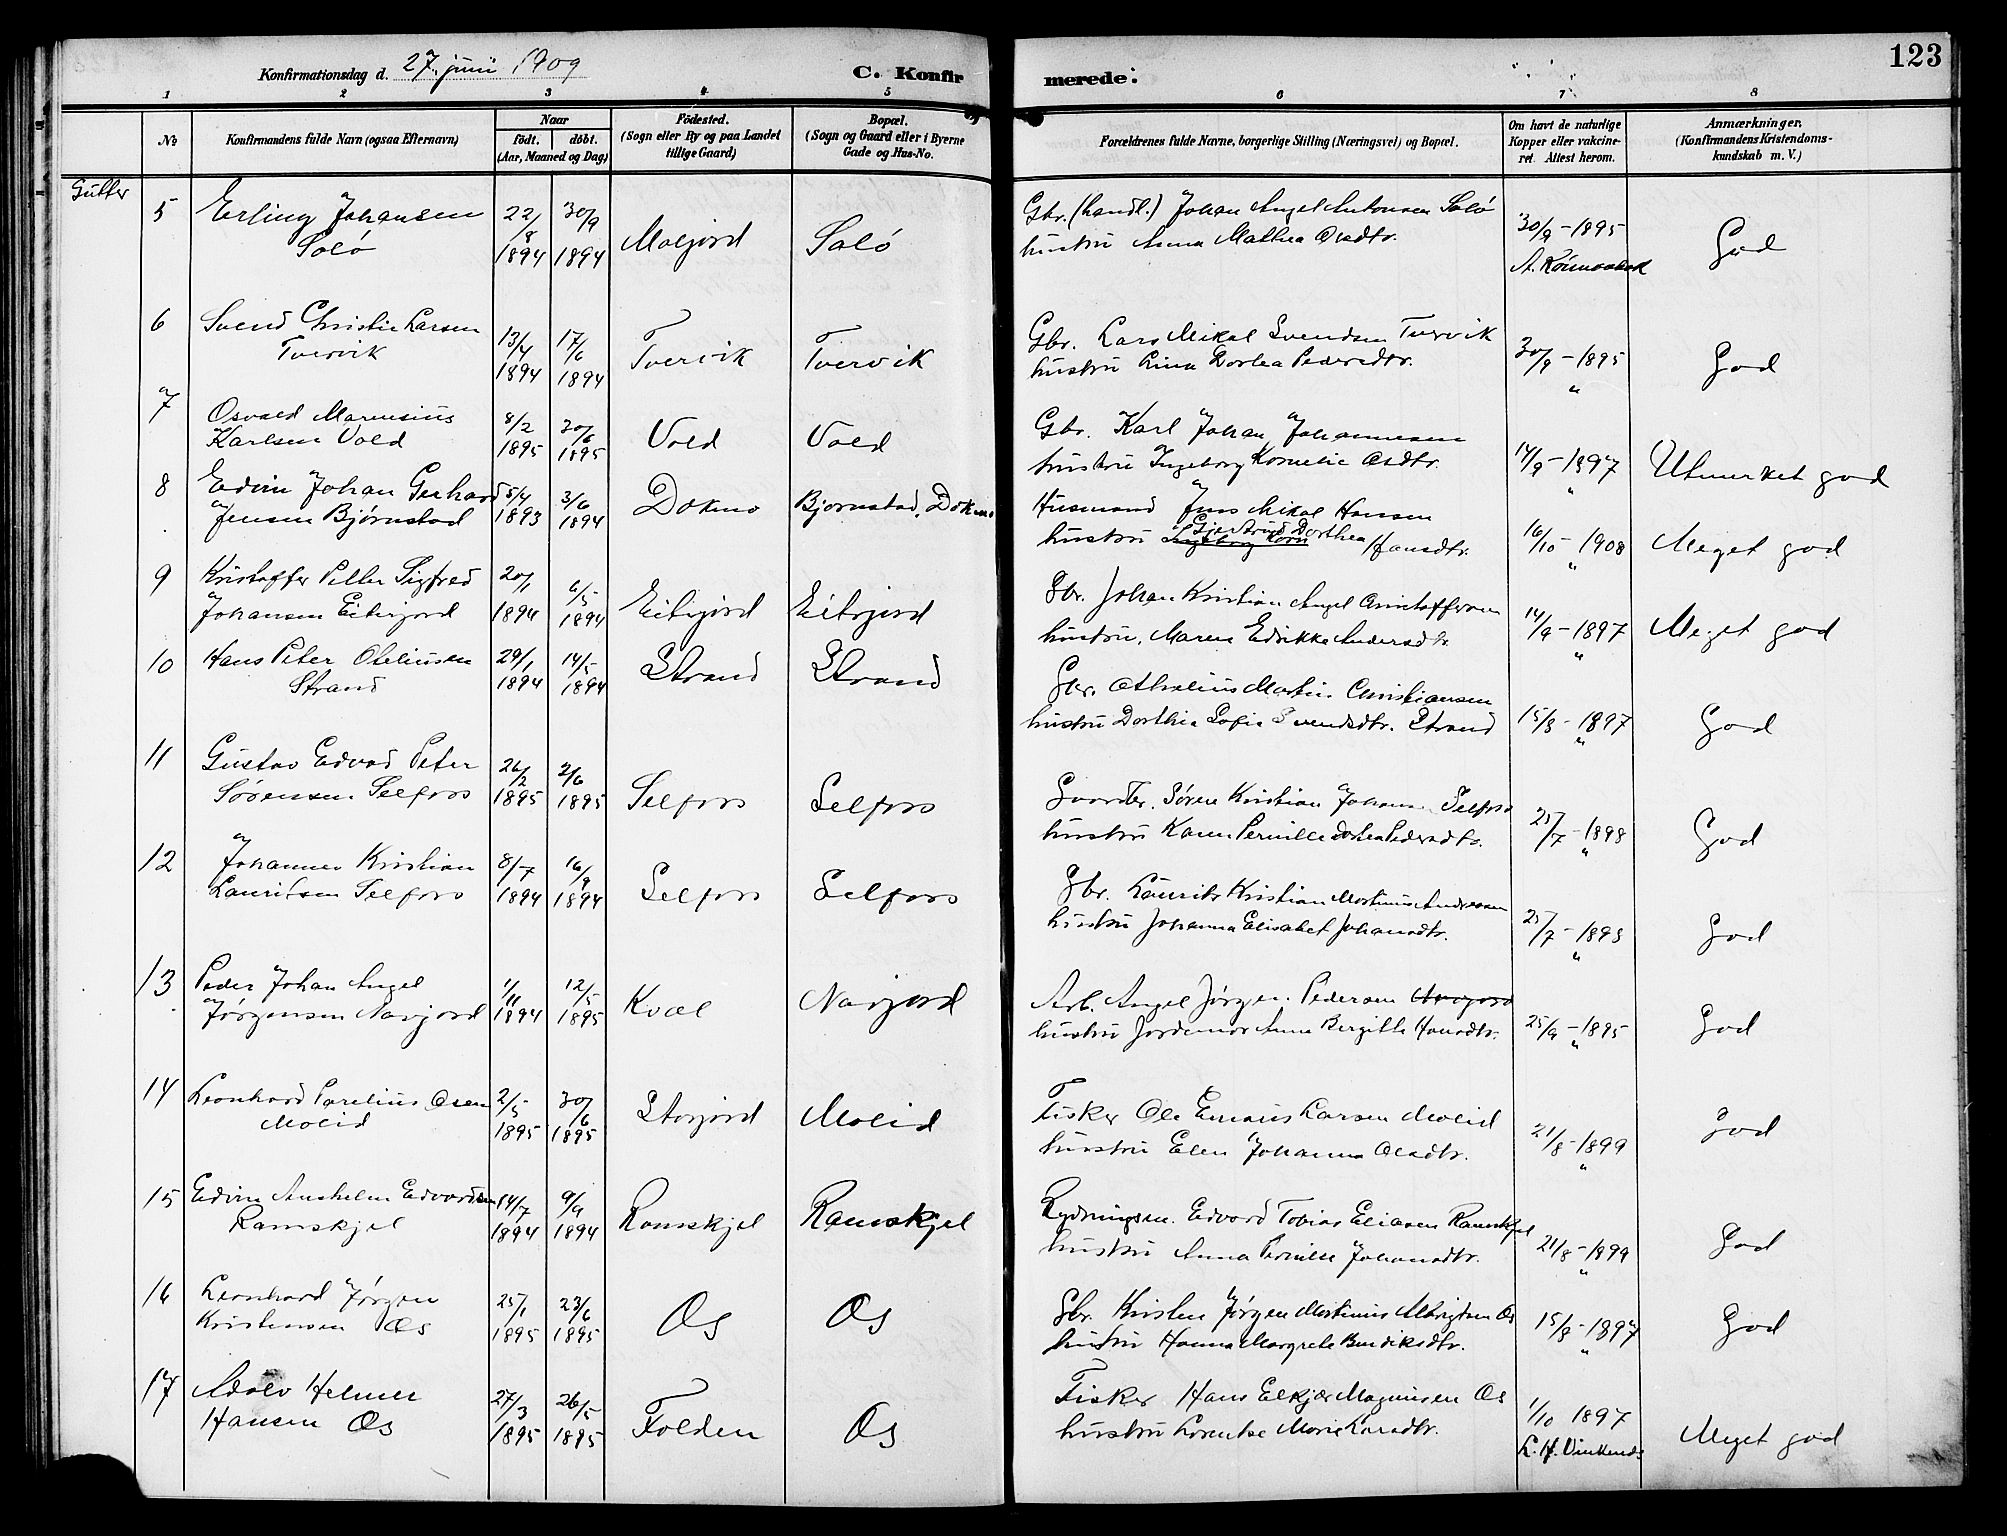 123
Konfirmationsdag d. 27. juni 1909
C. Konfirmerede:
1 2 3 4 5 6 7 8
No
Konfirmandens fulde Navn (ogsaa Efternavn)
Naar
födt. döbt.
(Aar, Maaned og Dag)
Födested.
(Sogn eller By og paa Landet
tillige Gaard)
Bopæl.
(Sogn og Gaard eller i Byerne
Gade og Hus-No.
Forældrenes fulde Navne, borgerlige Stilling (Næringsvei) og Bopæl.
Om havt de naturlige
Kopper eller vakcine-
ret. Attest herom.
Anmærkninger,
(Konfirmandens Kristendoms-
kundskab m. V.)
Gutter
5 Erling Johansen
Solö
22/8 1894 30/9 1894
Moljord Solö
Gbr. (handl.) Johan Angel Antonsen Solö
hustru Anna Mathea Olsdtr.
30/9 - 1895
God
6 Svend Christie Larsen
Tvervik
13/4 1894 17/6 1894
Tvervik Tvervik
Gbr. Lars Mikal Svendsen Tvervik
hustru Lina Dorlea Pedersdtr.
30/9 - 1895 "
God
7 Osvald Marensius
Karlsen Vold
8/2 1895 30/6 1895
Vold Vold
Gbr. Karl Johan Johannesen
hustru Ingeborg Kornelie Olsdtr.
14/9 - 1897 "
Utmerket god
8 Edvin Johan Gerhard
Jensen Bjørnstad
5/4 1893 3/6 1894
Dokmo Bjørnstad, Dokmo
Husmand Jens Mikal Hansen
hustru Gjertrud Dorthea Hansdtr.
16/10 - 1908 "
Meget god
9 Kristoffer Petter Sigfred
Johansen Eiterjord
20/1 1894 6/5 1894
Eiterjord Eiterjord
Gbr. Johan Kristian Angel Christoffersen
hustru, Maren Edrikke Andersdtr.
14/9 - 1897 "
Meget god
10 Hans Peter Oteliusen
Strand
29/1 1894 14/5 1894
Strand Strand
Gbr. Othelius Martin Christiansen
hustru Dorthia Sofie Svendsdtr. Strand
15/8 - 1897 "
God
11 Gustav Edvad Peter
Sörensen Selfors
26/2 1895 2/6 1895
Selfors Selfors
Gaardbr. Sören Kristian Johans. Selfors
hustru Karen Pernille Dorhea Pedersdtr.
25/7 - 1898 "
God
12 Johannes Kristian
Lauritsen Selfors
8/7 1894 16/9 1894
Selfors Selfors
Gbr. Laurits Kristian Martinus Andersen
hustru Johanna Elisabet Johansdtr.
25/7 - 1893 "
God
13 Peder Johan Angel
Jørgensen Navjord
1/11 1894 12/5 1895
Kvæl Navjord
Arb. Angel Jørgen Pedersen
hustru Jordemor Anna Bergitte Hansdtr.
25/9 - 1895 "
God
14 Leonhard Parelius Olsen
Molid
2/5 1895 30/6 1895
Storjord Molid
Fisker Ole Emaus Larsen Molid
hustru Elen Johanna Olsdtr.
21/8 - 1899 "
God
15 Edvin Anshelm Edvardsen
Ramskjel
14/7 1894 9/9 1894
Ramskjel Ramskjel
Rydningsm. Edvard Tobias Eliasen Ramskjel
hustru Anna Pernille Johansdtr.
21/8 - 1899 "
God
16 Leonhard Jörgen
Kristensen Os
25/1 1895 23/6 1895
Os Os
Gbr. Kristen Jörgen Martinus Albrigtsen Os
hustru Hanna Margrete Bendiksdtr.
15/8 - 1897 "
God
17 Adolv Helmer
Hansen Os
27/3 1895 26/5 1895
Folden Os
Fisker Hans Elkjær Magnusen Os
hustru Lorentse Marie Larsdtr.
1/10 1897
Meget god